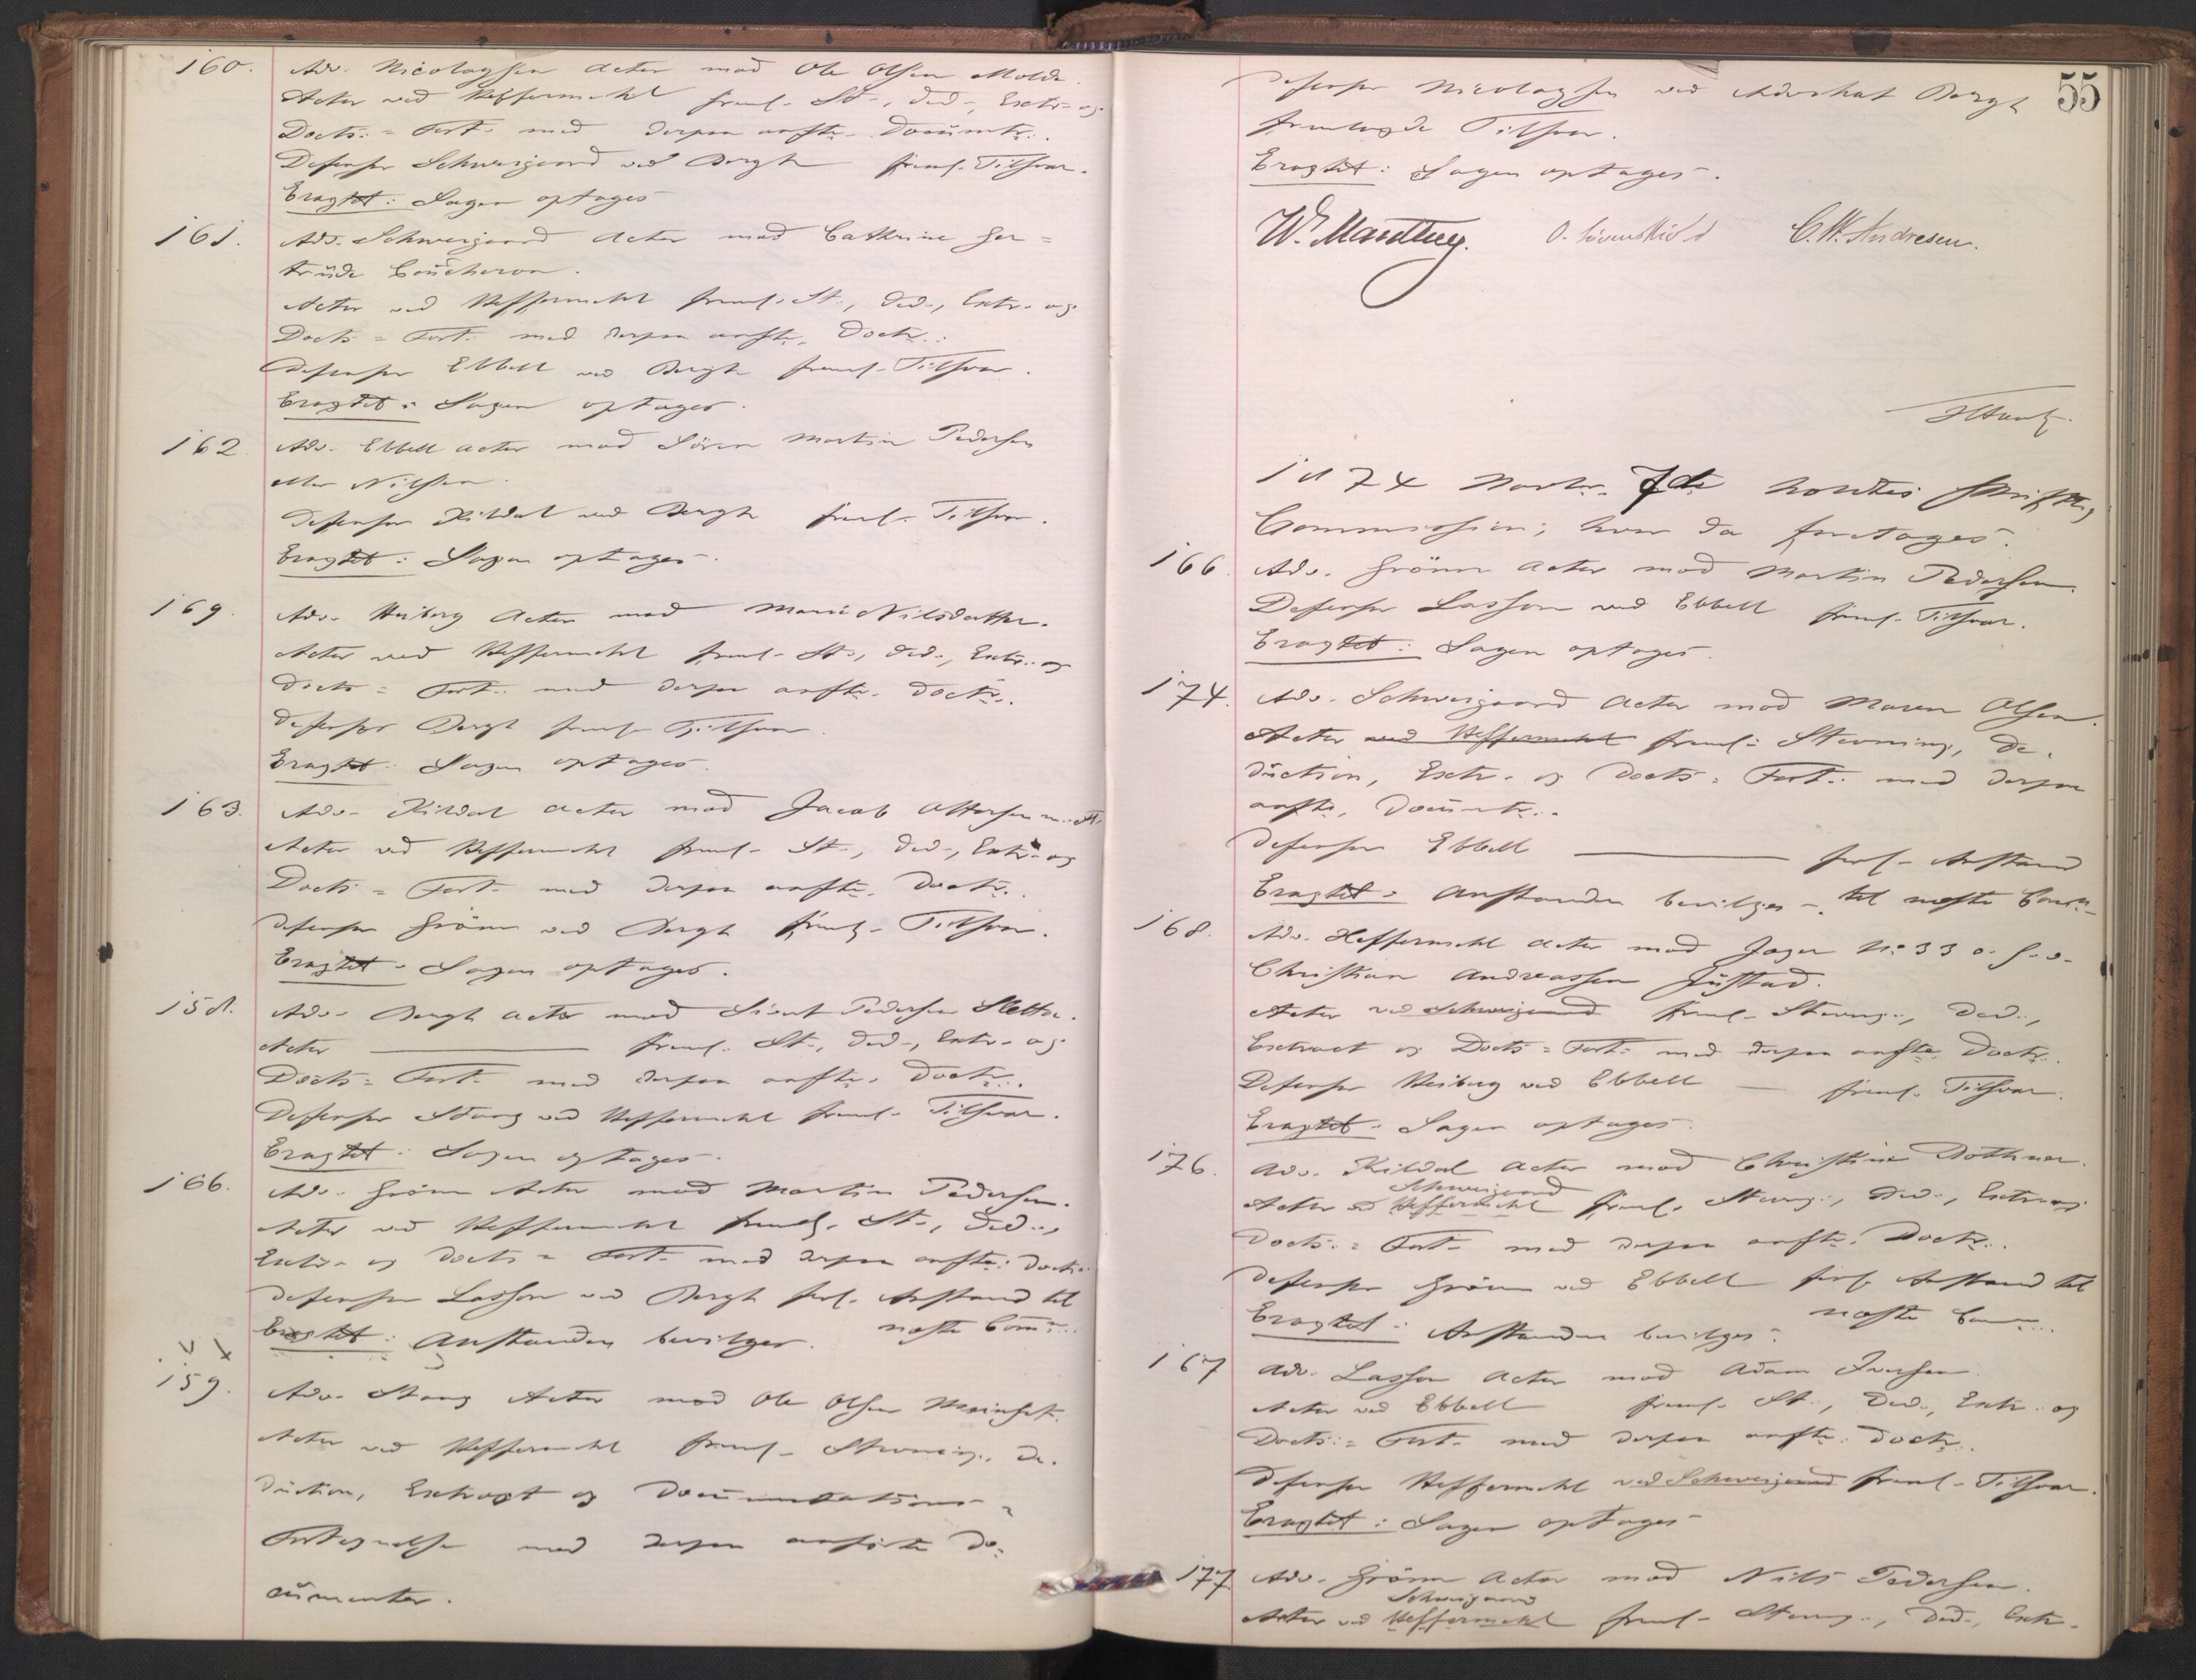 160. Adv. Nicolaysen Actor mod Ole Olsen Molde.
Actor ved Heffermehl freml. St., Ded., Extr. og
Docts.= Fort. med derpaa anfte. Documtr.
Defensor Schweigaard ved Bergh freml. Tilsvar.
Eragtet: Sagen optages
161. Adv. Schweigaard Actor mod Cathrine Ger=
trüde Coucheron.
Actor ved Heffermehl freml. St., Ded., Extr. og
Docts = Fort. med derpaa anfte. Doctr.
Defensor Ebbell ved Bergh freml. Tilsvar.
Eragtet: Sagen optages.
162. Adv. Ebbell Actor mod Sören Martin Pedersen
eller Nilsen.
Defensor Kildal ved Bergh freml. Tilsvar.
Eragtet: Sagen optages.
169. Adv. Heiberg Actor mod Marie Nilsdatter.
Actor ved Heffermehl freml. St., Ded., Extr. og
Docts = Fort. med derpaa anfte. Doctr.
Defensor Bergh freml. Tilsvar.
Eragtet: Sagen optages.
163. Adv. Kildal Actor mod Jacob Ottersen m. fl.
Actor ved Heffermehl freml. St., Ded., Extr. og
Docts = Fort. med derpaa anfte. Doctr.
Defensor Grönn ved Bergh freml. Tilsvar.
Eragtet: Sagen optages.
158. Adv. Bergh Actor mod Sivert Pedersen Sletta.
Actor freml. St., Ded., Extr. og
Docts = Fort. med derpaa anfte. Doctr.
Defensor Stang ved Heffermehl freml. Tilsvar.
Eragtet: Sagen optages.
166. Adv. Grönn Actor mod Martin Pedersen.
Actor ved Heffermehl freml. St., Ded.,
Extr. og Docts = Fort. med derpaa anfte. Doctr.
Defensor Lasson ved Bergh forl. Anstand til
Eragtet: Anstanden bevilges. næste Com.
159. Adv. Stang Actor mod Ole Olsen
Actor ved Heffermehl freml. Stevning, De=
duction, Extract og Documentations=
Fortegnelse med derpaa anförte Do=
cümenter.
55
Defensor Nicolaysen ved Advokat Bergh
fremlagde Tilsvar.
Eragtet: Sagen optages.
W. Mandtheg. O. Lövenskiold C. W. Andresen.
1874 Novbr. 7de holdtes skriftlig
Commission; hvor da foretages:
166. Adv. Grönn Actor mod Martin Pedersen.
Defensor Lasson ved Ebbell freml. Tilsvar.
Eragtet: Sagen optages.
174. Adv. Schweigaard Actor mod Maren Olsen.
Actor ved Heffermehl freml. Stevning, De=
düction, Extr. og Docts = Fort. med derpaa
anfte. Documtr.
Defensor Ebbell forl. Anstand
Eragtet: Anstanden bevilges til næste Com.
168. Adv. Heffermehl Actor mod Jager No 33
Christian Andreassen Jüstad.
Actor ved Schweigaard freml. Stevng., Ded.,
Extract og Docts = Fort. med derpaa anfte. Doctr.
Defensor Heiberg ved Ebbell freml. Tilsvar.
Eragtet: Sagen optages.
176. Adv. Kildal Actor mod Christine
Schweigaard
Actor ved Heffermehl freml. Stevng., Ded., Extr. og
Docts. = Fort. med derpaa anfte. Doctr.
Defensor Grönn ved Ebbell forl. Anstand til
Eragtet: Anstanden bevilges. næste Com.
167 Adv. Lasson Actor mod Adam Iversen.
Actor ved Ebbell freml. St., Ded., Extr. og
Docts. = Fort. med derpaa anfte. Doctr.
Defensor Heffermehl ved Schweigaard freml. Tilsvar.
Eragtet: Sagen optages
177. Adv. Grönn Actor mod Nils Pedersen.
Schweigaard
Actor ved Heffermehl freml. Stevng., Ded., Extr.